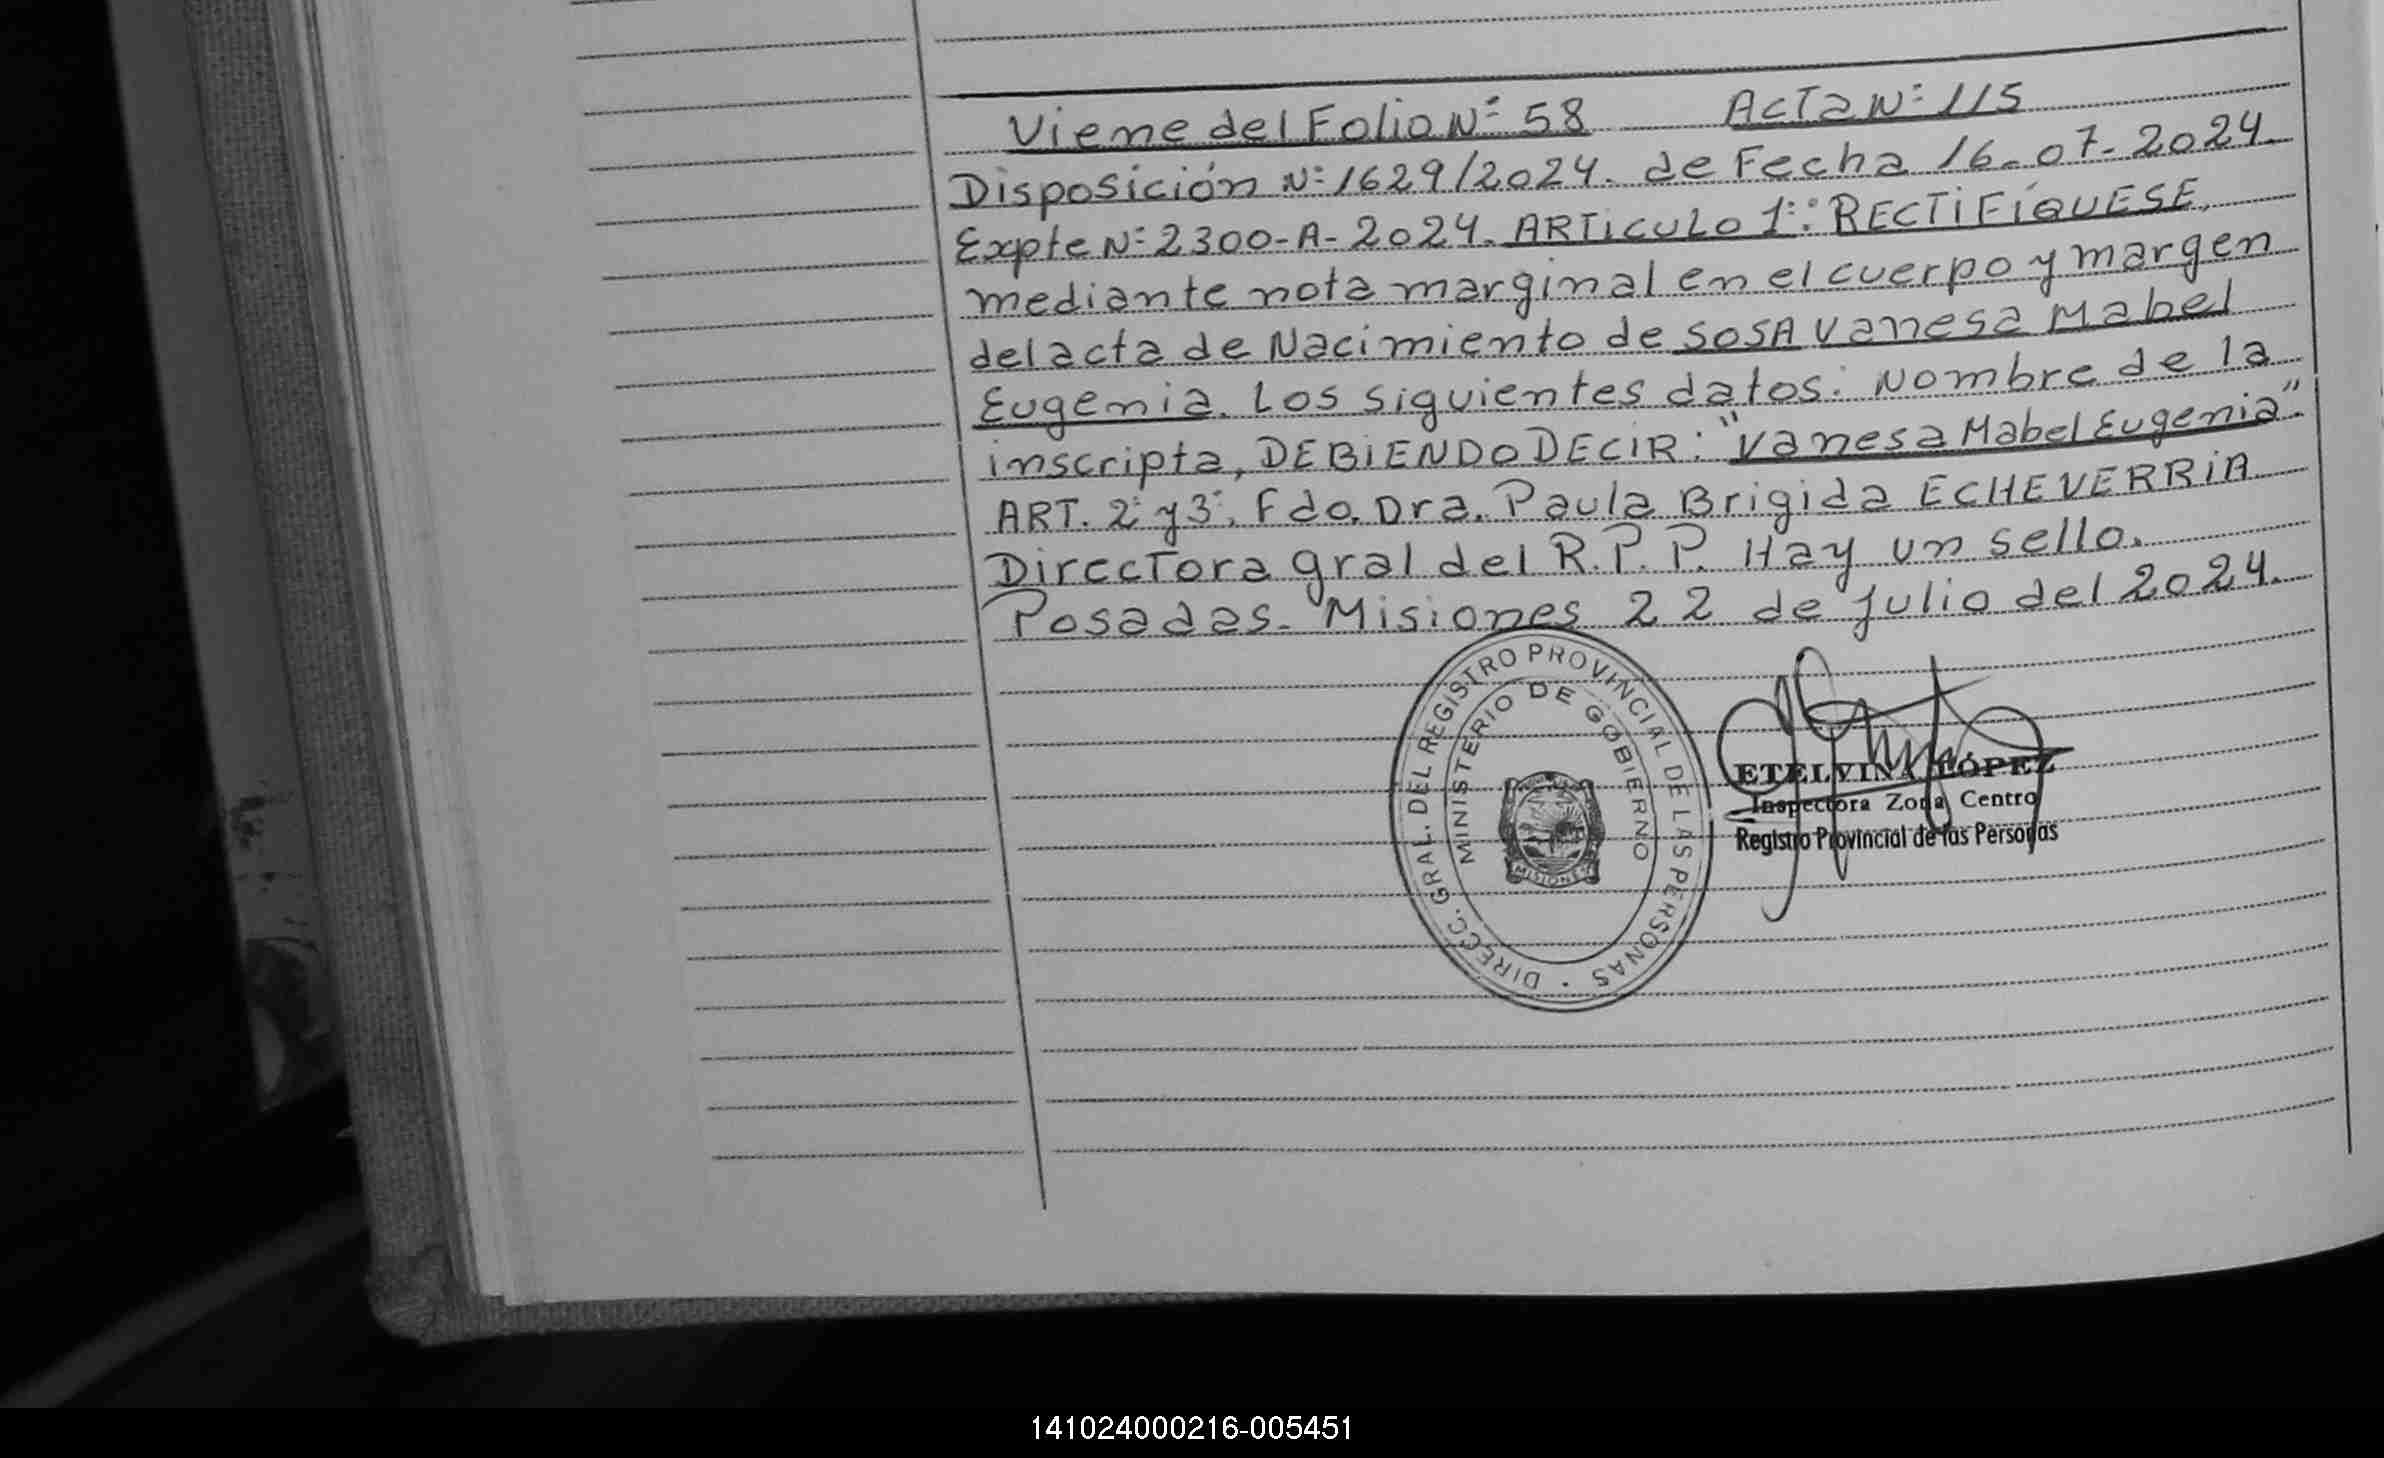 Viene del Folio Nº 58 Acta Nº 115
Disposición Nº 1629/2024. de Fecha 16-07-2024
Expte Nº 2300-A-2024. ARTICULO 1º: RECTIFÍQUESE,
mediante nota marginal en el cuerpo y margen
del acta de Nacimiento de SOSA Vanesa Mabel
Eugenia. Los siguientes datos: Nombre de la
inscripta, DEBIENDO DECIR: "Vanesa Mabel Eugenia".
ART. 2º y 3º. Fdo. Dra. Paula Brigida ECHEVERRIA
Directora gral del R.P.P. Hay un sello.
Posadas. Misiones 22 de julio del 2024.
DIRECC. GRAL. DEL REGISTRO PROVINCIAL DE LAS PERSONAS
MINISTERIO DE GOBIERNO
MISIONES
ETELVINA LÓPEZ
Inspectora Zona Centro
Registro Provincial de las Personas
141024000216-005451